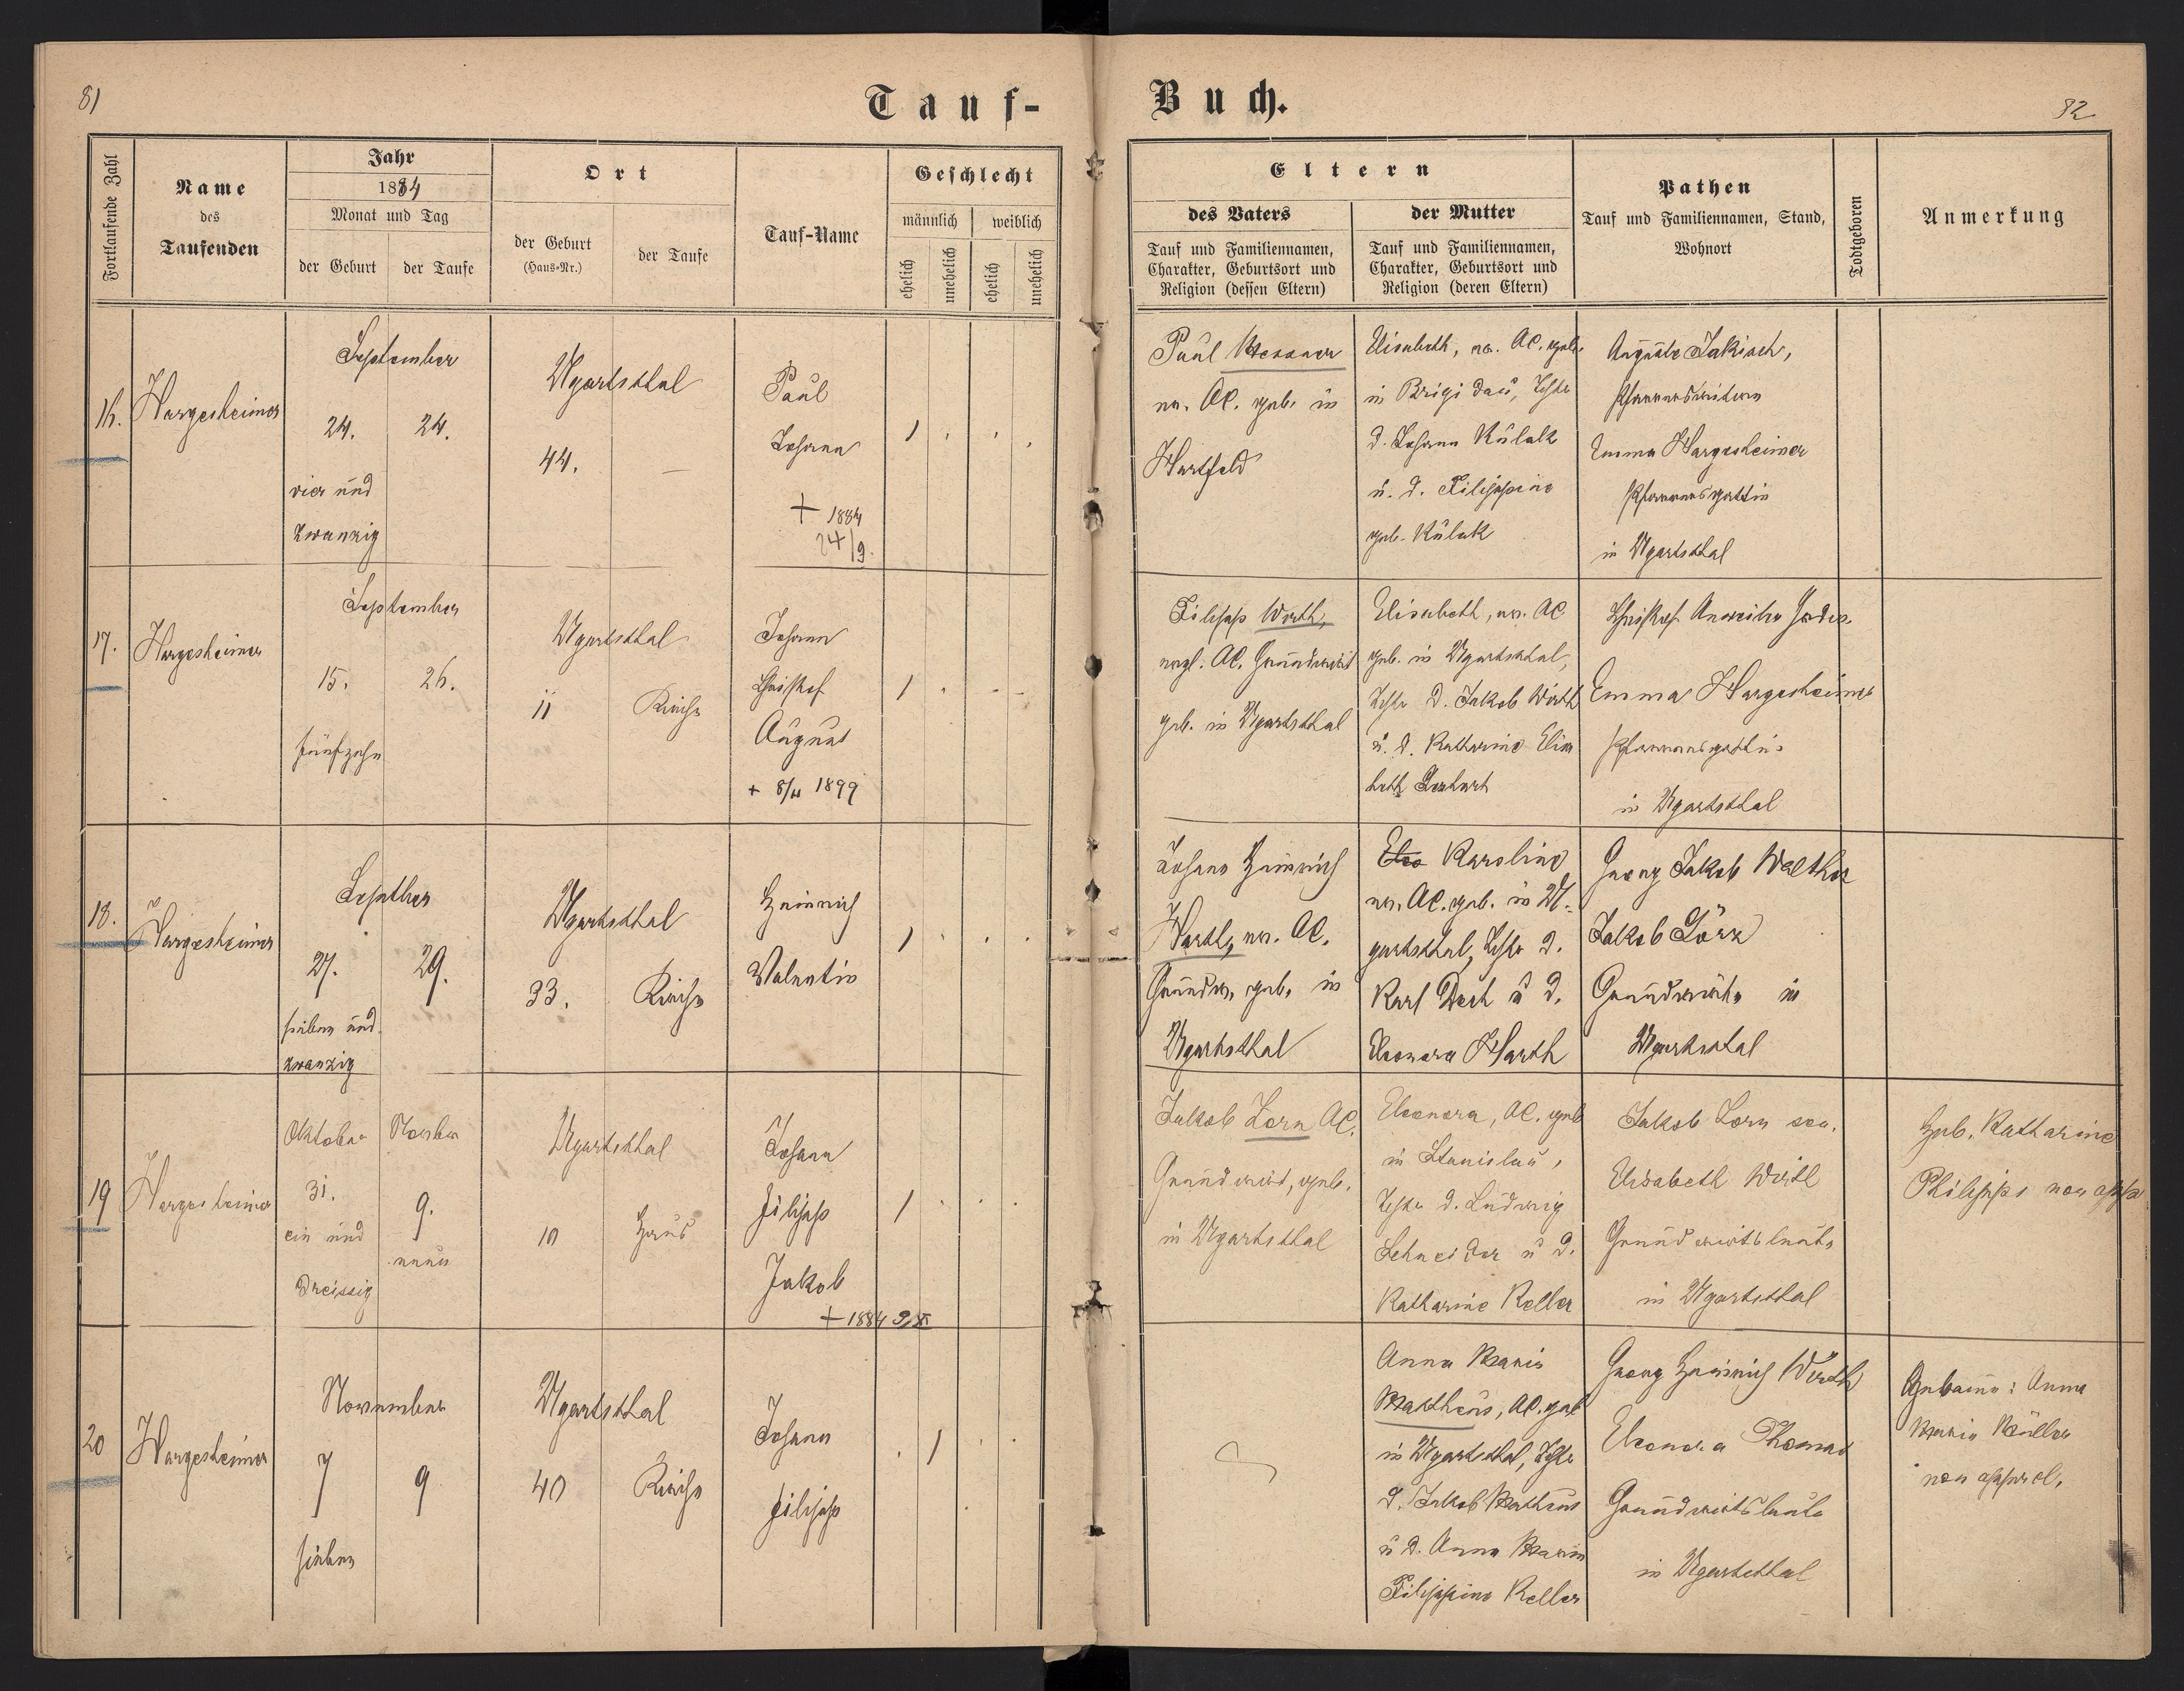 81
Tauf-
Fortlaufende Zahl
Name
des
Taufenden
Jahr
1884
Monat und Tag
der Geburt
der Taufe
Ort
der Geburt
(Haus-Nr.)
der Taufe
Tauf-Name
Geschlecht
männlich
weiblich
ehelich
unehelich
ehelich
unehelich
16.
Hargesheimer
September
24.
24.
vier und
zwanzig
Ugartsthal
44.
—
Paul
Johann
+ 1884
24/9.
1
17.
Hargesheimer
September
15.
26.
fünfzehn
Ugartsthal
11
Kirche
Johann
Christof
August
+ 8/11 1899
1
18.
Hargesheimer
Septber
27.
29.
sieben und
zwanzig
Ugartsthal
33.
Kirche
Heinrich
Valentin
1
19
Hargesheimer
Oktober
November
31.
9.
ein und
neun
dreissig
Ugartsthal
10
Haus
Johann
Filipp
Jakob
+ 1884
1
20
Hargesheimer
November
7
9
sieben
Ugartsthal
40
Kirche
Johann
Filipp
1
Buch.
82
Eltern
des Vaters
Tauf und Familiennamen,
Charakter, Geburtsort und
Religion (dessen Eltern)
der Mutter
Tauf und Familiennamen,
Charakter, Geburtsort und
Religion (deren Eltern)
Pathen
Tauf und Familiennamen, Stand,
Wohnort
Todtgeboren
Anmerkung
Paul Messner
ev. AC. geb. in
Hartfeld
Elisabeth, ev. AC. geb.
in Brigidau, Tochter
d. Johann Kulak
u. d. Filippine
geb. Kulak
Auguste Jakisch,
Pfarrerswitwe
Emma Hargesheimer
Pfarrersgattin
in Ugartsthal
Filipp Wirth,
evgl. AC. Grundwirt
geb. in Ugartsthal
Elisabeth, ev. AC
geb. in Ugartsthal,
Tochter d. Jakob Wirth
u. d. Katharine Elisa
beth
Christof
Emma Hargesheimer
Pfarrersgattin
in Ugartsthal
Johann Heinrich
Harth, ev. AC.
Grundw. geb. in
Ugartsthal
Karoline
ev. AC. geb. in U-
gartsthal, Tochter d.
Karl Dech u d.
Eleonora Harth
Georg Jakob Walther
Jakob Lörz
Grundwirte in
Ugartsthal
Jakob Lorn AC.
Grundwirt, geb.
in Ugartsthal
Eleonora, AC. geb
in Stanislau,
Tochter d. Ludwig
Schneider u d.
Katharine Keller
Jakob Lorn sen.
Elisabeth Wirth
Grundwirtsleute
in Ugartsthal
Heb. Katharine
Philipps non appr.
Anna Maria
Mattheus, AC. geb
in Ugartsthal, Tochter
d. Jakob Matheus
u d. Anna Maria
Filippine Keller
Georg Heinrich Wirth
Eleonora Thomas
Grundwirtsleute
in Ugartsthal
Hebame: Anna
Maria Müller
non approb.